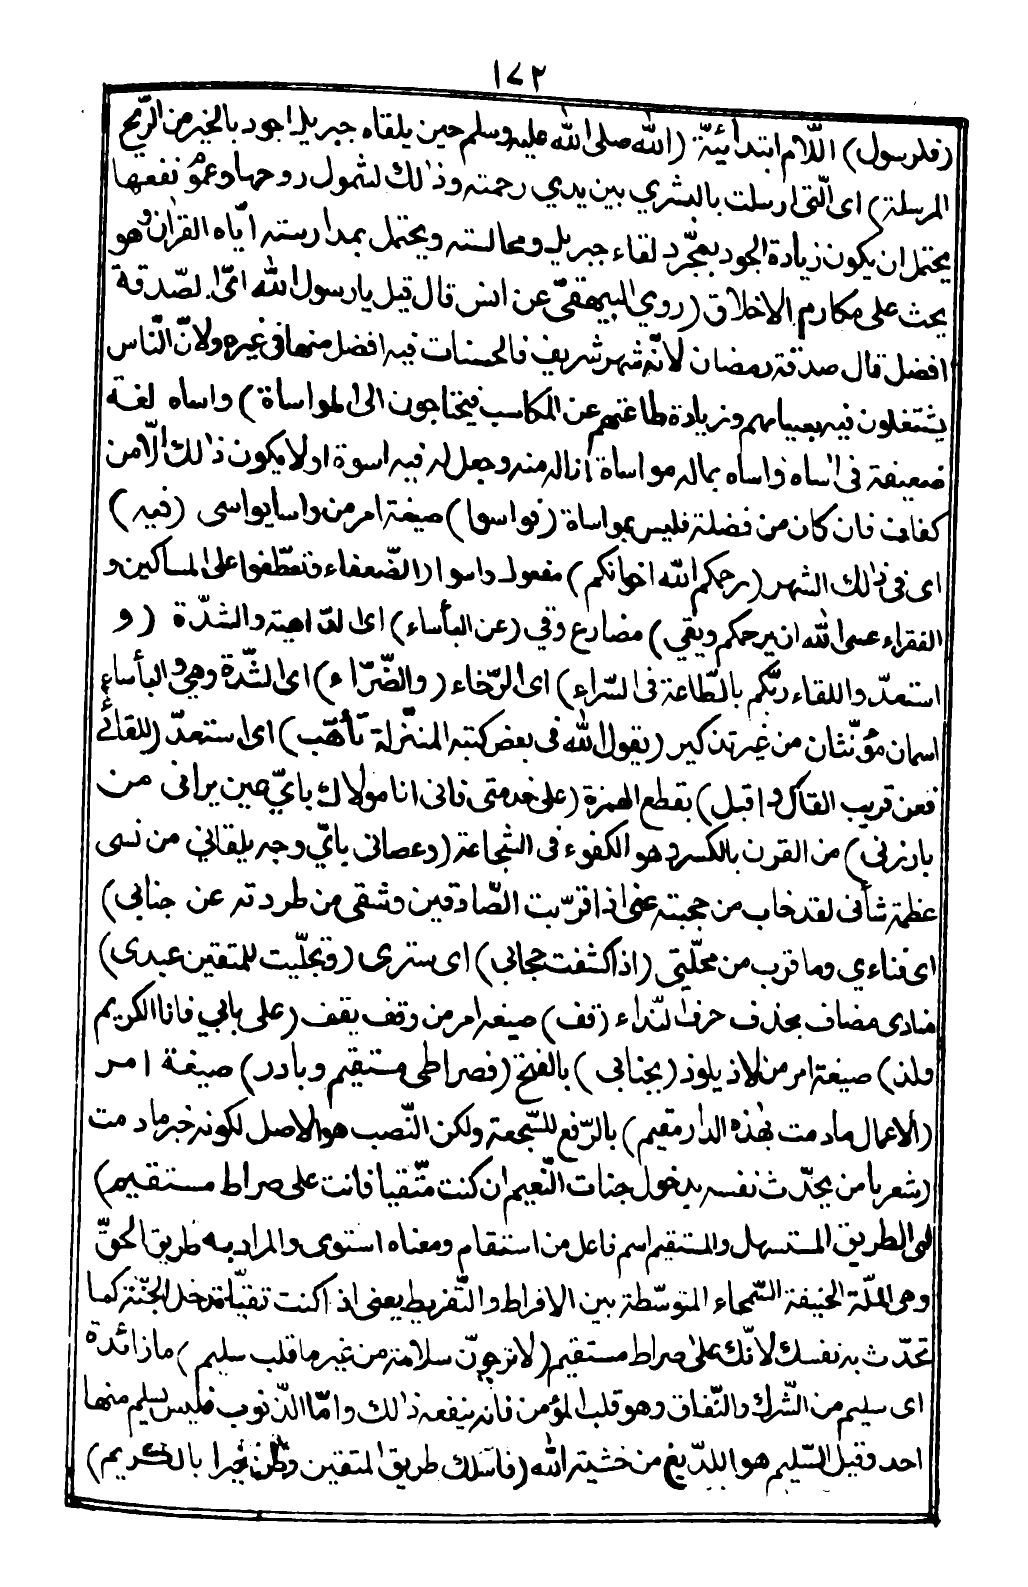 ١٧٢
(فلرسول) اللّام ابتدائيّة (الله صلى الله عليه وسلم حين يلقاه جبريل اجود بالخير من الرّيح
المرسلة) اى الّتى ارسلت بالبشري بين يدي رحمته وذالك لشمول روحها وعموم نفعها
يحتمل ان يكون زيادة الجود بمجّرد لقاء جبريل ومجالسته ويحتمل بمدارسته ايّاه القرأن وهو
يحث على مكارم الاخلاق (روي البيهقيّ عن انس قال قيل يارسول الله اىّ الصّدقة
افضل قال صدقة رمضان لانّه شهر شريف فالحسنات فيه افضل منها فى غيره ولانّ النّاس
يشتغلون فيه بصيامهم وزيادة طاعتهم عن المكاسب فيحتاجون الى المواساة) واساه لغة
ضعيفة فى اساه واساه بماله مواساة انا له منه وجعل له فيه اسوة اولا يكون ذالك الّا من
كفاف فان كان من فضلة فليس بمواساة (فواسوا) صيغة امر من واسا يواسى (فيه)
اى فى ذالك الشهر (يرحمكم الله اخوانكم) مفعول واسوا الضّعفاء وتعطّفوا على المساكين و
الفقراء عسى الله ان يرحمكم ويقي) مضارع وقي (عن البأساء) اى الدّاهية والشدّة (و
استعدّ واللقاء ربّكم بالطّاعة فى السّراء) اى الرّخاء (والضّرّاء) اى الشّدة وهي والبأساء
اسمان مؤنّثان من غير تذكير (يقول الله فى بعض كتبه المنزّلة تأهّب) اى استعدّ (للقائى
فعن قريب القاك واقبل) بقطع الهمزة (على خدمتى فانى انا مولاك باىّ عين يرانى من
بارزنى) من القرن بالكسر وهو الكفوء فى الشجاعة (وعصانى بايّ وجه يلقاني من نسى
عظمة شأنى لقد خاب من حجبته عنى اذا قرّبت الصّادقين وشقى من طردته عن جنابى)
اى فناءي وما قرب من محلّتي (اذا كشفت حجابى) اى سترى (وتجلّيت للمتقين عبدى)
منادى مضاف بحذف حرف النّداء (قف) صيغة امر من وقف يقف (على بابي فانا الكريم
ولذ) صيغة امر من لاذ يلوذ (بجنابى) بالفتح (فصراطى مستقيم وبادر) صيغة امر
(الاعمال مادمت بهذه الدار مقيم) بالرّفع للسّجعة ولكن النّصب هو الاصل لكونه خبر مادمت
(شعر يا من يحدّث نفسه بدخول جنات النّعيم ان كنت متّقيا فانت على صراط مستقيم)
اى الطريق المستسهل والمستقيم اسم فاعل من استقام ومعناه استوى والمراد به طريق الحقّ
وهى الملّة الحنيفة السّمحاء المتوسّطة بين الافراط والتّفريط يعنى اذا كنت تقيّا تدخل الجنّة كما
تحدّث به نفسك لانّك على صراط مستقيم (لاترجونّ سلامة من غير ما قلب سليم) ما زائدة
اى سليم من الشّرك والنّفاق وهو قلب المؤمن فانه ينفعه ذالك وامّا الذّنوب فليس يسلم منها
احد وقيل السّليم هو اللديغ من خشية الله (فاسلك طريق المتقين وظنّ خيرا بالكريم)